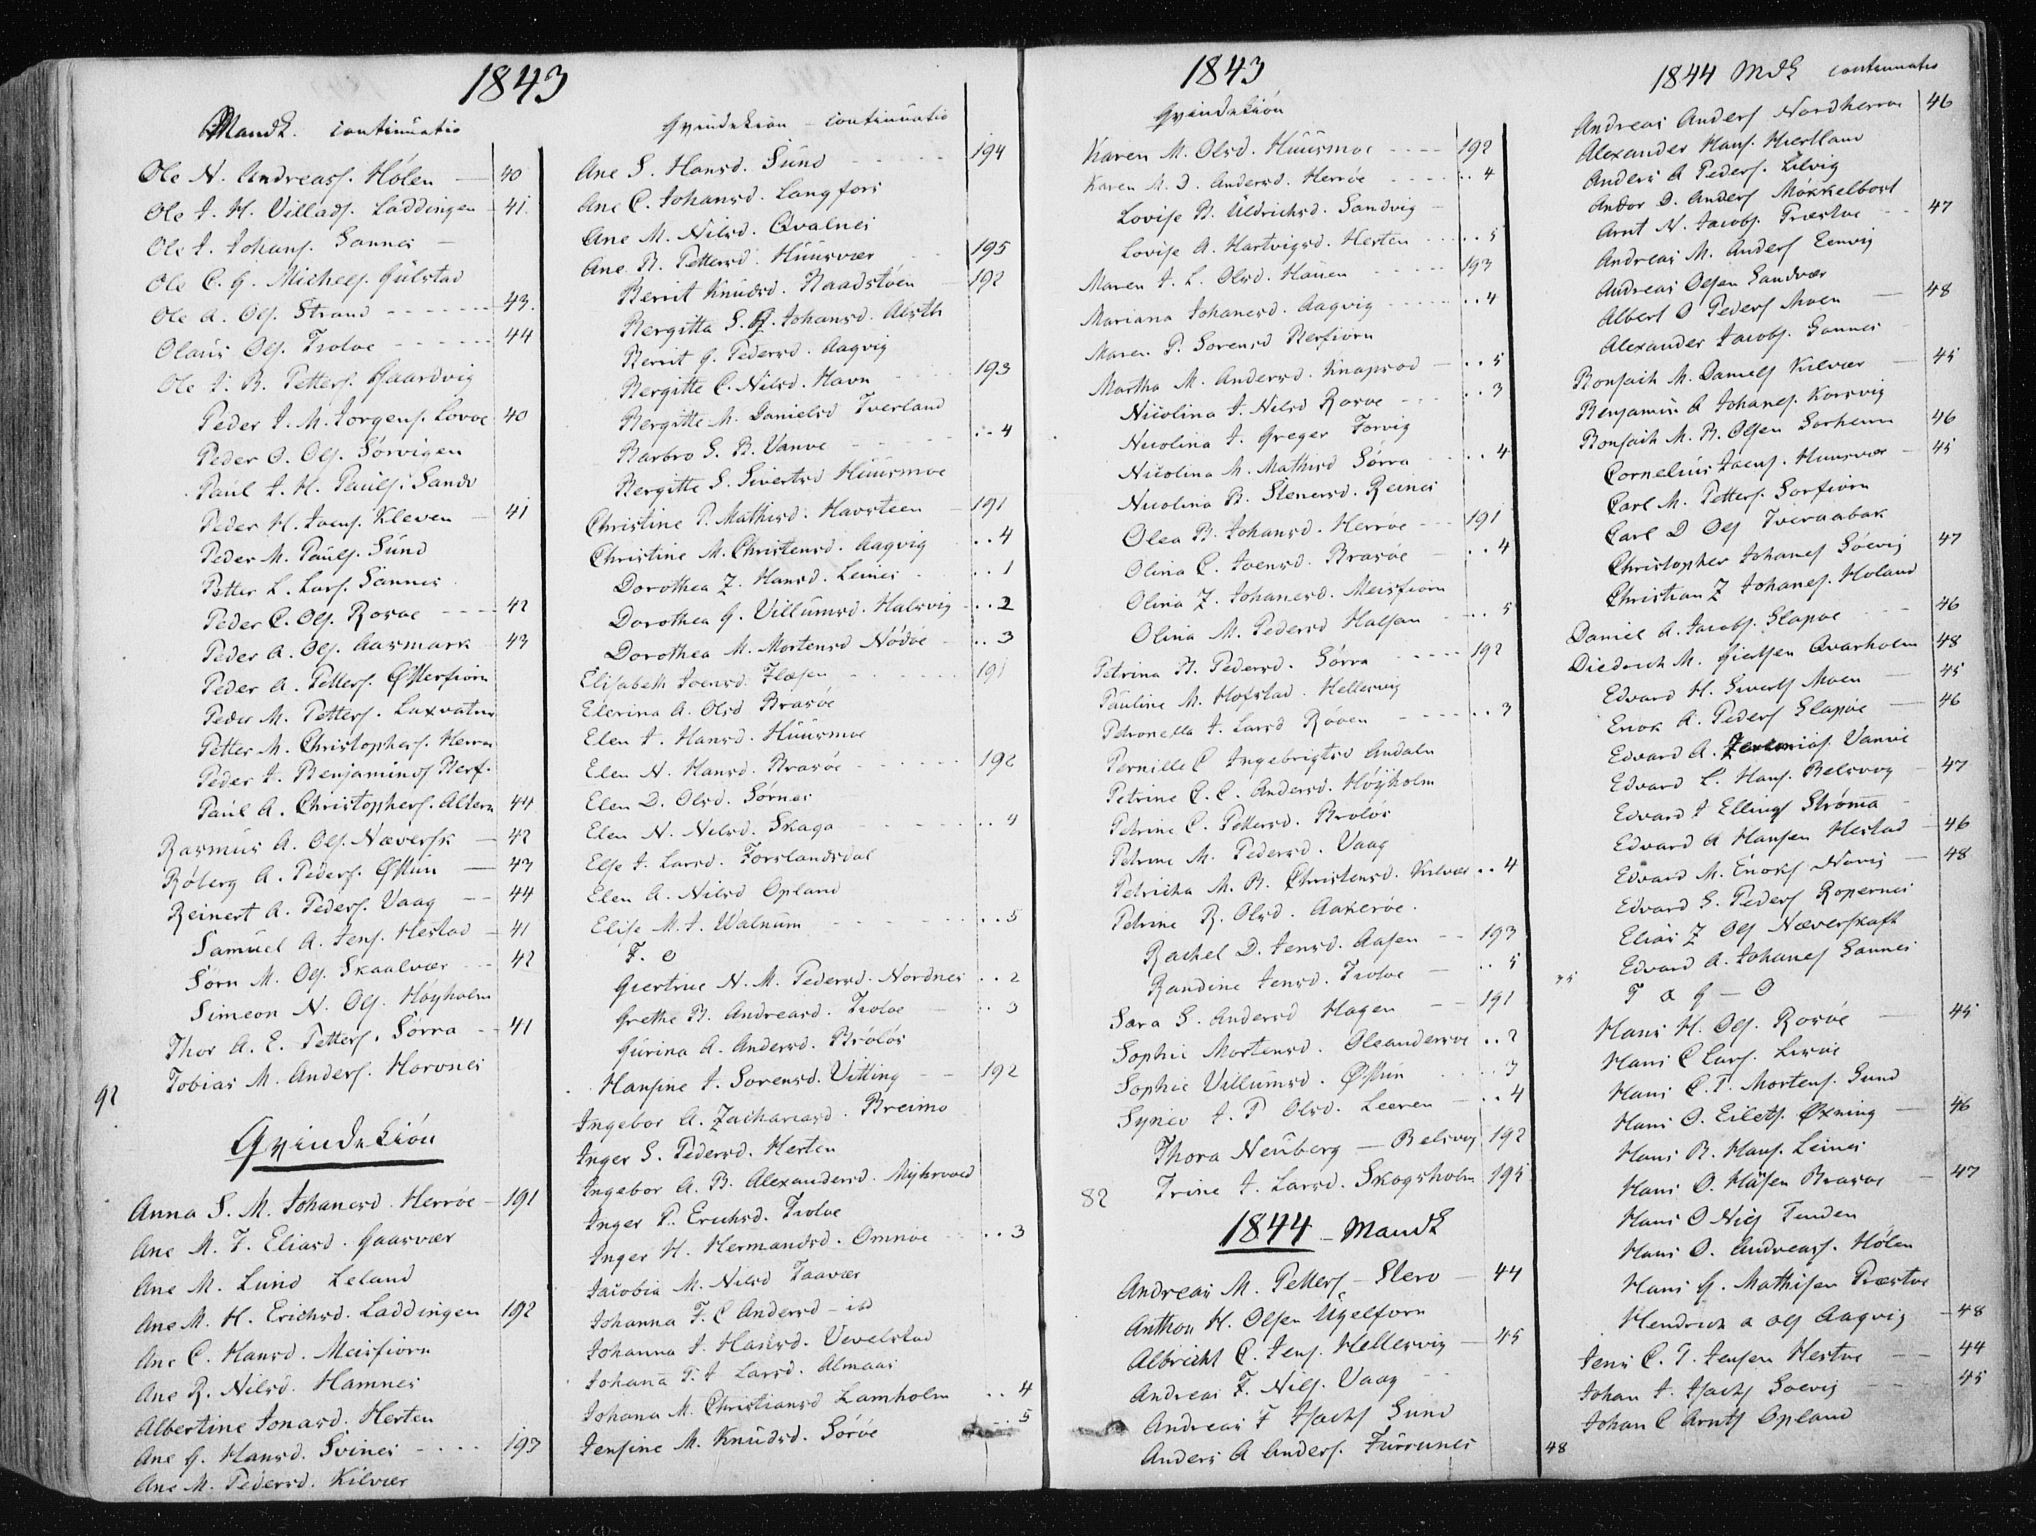 1843
Mandk. continuatio
Ole N. Andreasf. Hølen — 40
Ole J. H. Villadf. Laddingen - 41.
Ole J. Johanf. Sannes —
Ole C. G. Michelf. Gulstad
Ole A. Olf. Strand - - - - - - 43.
Olaus Olf. Troløe - - - - - - 44
Ole J. B. Petterf. Gaardvig
Peder J. M. Jørgenf. Lovøe 40
Peder O. Olf. Sørvigen
Paul J. H. Paulf. Sandv
Peder H. Joenf. Kleven — 41
Peder M. Paulf. Sund
Petter L. Larf. Sannes
Peder C. Olf. Rosøe - - - - 42
Peder A. Olf. Aasmark - - 43
Peder A. Petterf. Otterfiorn
Peder M. Petterf. Laxvatn
Petter M. Christopherf. Herrøe
Peder J. Benjaminf Nerf.
Paul A. Christopherf. Altern 44
Rasmus A. Olf. Næverfk — 42
Røberg A. Pederf. Østun — 43
Reinert A. Pederf. Vaag -- 44
Samuel A. Jenf. Hestad - 41
Sørn M. Olf. Skaalvær - - 42
Simeon N. Olf. Høyholm
Thor A. E. Petterf. Sørra - - 41
Tobias M. Anderf. Horvnes
92
Qvindekiøn
Anna S. M. Johanesd. Herrøe - 191
Ane M. J. Eliasd. Gaasvær
Ane M. Lund Leland
Ane M. H. Erichsd. Laddingen 192
Ane C. Hansd. Meisfiorn
Ane R. Nilsd. Hamnes
Albertine Jonasd. Hesten
Ane G. Hansd. Svines - - - - 193
Ane M. Pedersd. Kilvær
Qvindekiøn - continuatio
Ane S. Hansd. Sund - - - - - 194
Ane C. Johansd. Langfors
Ane M. Nilsd. Qvalnes
Ane B. Pettersd. Huusvær - - 195
Berrit Knudsd. Raadstøen - 192
Bergitta S. J. Johansd. Alsth
Berrit G. Pedersd. Aagvig
Bergitte C. Nilsd. Havn - - - - 193
Bergitte M. Danielsd Tverland
Barbro S. B. Vanve - - - - - .. 4
Bergitte S. Sivertsd Huusmoe
Christine P. Mathisd. Havsteen - 191
Christine M. Christensd. Aagvig .. 4
Dorothea Z. Hansd. Leines .. 1
Dorothea G. Villumsd. Halsvig .. 2
Dorothea M. Mortensd Nødøe .. 3
Elisabeth Joensd. Flasen - - - - - - 191
Elerina A. Olsd Brasøe
Elen J. Hansd. Huusmoe
Elen N. Hansd. Brasøe - - - - - - 192
Elen D. Olsd. Sørnes
Elen N. Nilsd. Skaga - - - - - .. 4
Else J. Larsd. Forslandsdal
Elen A. Nilsd Opland
Elise M. J. Walnum - - - - - .. 5
F. O
Giertrue N. M. Pedersd. Nordnes .. 2
Grethe B. Andreasd. Troløe — .. 3
Gurina A. Andersd. Brøløs
Hansine J. Sorensd. Vitting - - 192
Ingebor A. Zachariasd. Breimo
Inger S. Pedersd. Hesten
Ingebor A. B. Alexandersd. Myhrvoed
Inger P. Erichsd. Troløe
Inger H. Hermandsd. Omnøe .. 3
Jacobia M. Nilsd Taavær
Johanna F. C Andersd - ibd
Johanna J. Hansd. Vevelstad
Johana P. J Larsd. Almaas
Johana M. Christiansd Lamholm .. 4
Jensine M. Knudsd. Sørøe .. 5
1843
Qvindekiøn
Karen M. Olsd. Huusmoe - - - - 192
Karen M. D. Andersd. Herrøe - - - - .. 4
Lovise B. Uldrichsd. Sandvig -
Lovise A. Hartvigsd. Hesten - - .. 5
Maren J. L. Olsd. Hauen - - - - - 193
Mariana Johanesd. Aagvig - - - - - .. 4
Maren P. Sorensd Nerfiorn
Martha M. Andersd. Knapsod — .. 5
Nicolina J. Nilsd Rosøe - - - .. 3
Nicolina J. Greger Forvig
Nicolina M. Mathisd Sørra - - - .. 4
Nicolina B. Stenersd. Reines
Olea B. Johansd. Herrøe - - - 191
Olina C. Joensd. Brasøe — .. 4
Olina Z. Johanesd. Meisfiorn
Olina M. Pedersd Halsan - - - .. 5
Petrina H. Pedersd. Sørra - - - - - 192
Pauline M. Hofstad. Hellesvig
Petronella J. Larsd Røøen - - - - .. 3
Pernille C Ingebrigtsd Andaln
Petrine C. C. Andersd. Høyholm
Petrine C. Pettersd. Broløs
Petrine M. Pedersd. Vaag
Petricka M. B. Christensd. Kilvær .. 4
Petrine R. Olsd. Aakerøe.
Rachel D. Jensd. Aasen - - 193
Randine Jensd. Troløe - .. 5
Sara S. Andersd Hagen - - 191
Sophie Mortensd. Oleandersøe .. 2
Sophie Villumsd. Østun - - - .. 3
Synev J. P Olsd. Leeren - .. 4
Thora Neuberg — Belsvog 192
82 Trine J. Larsd. Skogsholm 195
1844 - Mandk
Andreas M. Petterf - Sterv - 44
Anthon H. Olsen Ugelforn
Albricht C. Jenf. Hellesvig — 45
Andreas F. Nilf. Vaag - -
Andreas F Isachf Sund
Anders A Anderf. Furrunes
1844 Mdk continuatio
Andreas Anderf Nordherrøe 46
Alexander Hanf. Hiertland
Anders A Pederf. Lilvig
Andor D. Anderf Mokkelbost
Arnt N. Jacobf. Præstøe - - 47
Andreas M. Anderf Eenvig
Andreas Olsen Sandvær
Albert O Pederf Moen — 48
Alexander Jacobf. Sannes -
Bonsach M. Danielf Kilvær — 45
Benjamin A Johanef. Korsvig
Bonsach M. B. Olsen Sorherrn 46
Cornelius Jaenf. Huusvær - 45
Carl M. Petterf. Sorfiorn
Carl D Olf Tveraabak
Christopher Johanef Søevig 47
Christian Z Johanef. Holand
Daniel A. Jacobf. Slapøe - - - 46
Diedrich M. Giertsen Qvarholm 48
Edvard H. Sivertf Moen — 45
Enok A. Pederf Slapøe — 46
Edvard A. Jeremiaf. Vanvie
Edvard L. Hanf. Belsvog - 47
Edvard J Ellingf Strøma -
Edvard A Hansen Hestad - 46
Edvard M. Enokf Navig - 48
Edvard S. Pederf Ropernes
Elias Z Olf Næverskaft
Edvard A. Johanef Sannes
F & G - O
Hans H. Olf. Rosøe — 45
Hans C Larf. Lisøe
Hans C. P. Mortenf. Sund
Hans O. Eiletf. Øxning — 46
Hans B. Hanf. Leines
Hans O. Haßen Brasøe - 47
Hans O Nilf Tenden
Hans O. Andreasf. Hølen
Hans G. Mathisen Præstøe
Hendrich A Olf Aagvig - 48
Jens C. P. Jensen Hestøe — 44
Johan J. Isachf Soevig - - - 45
Johan C Arntf Opland
48